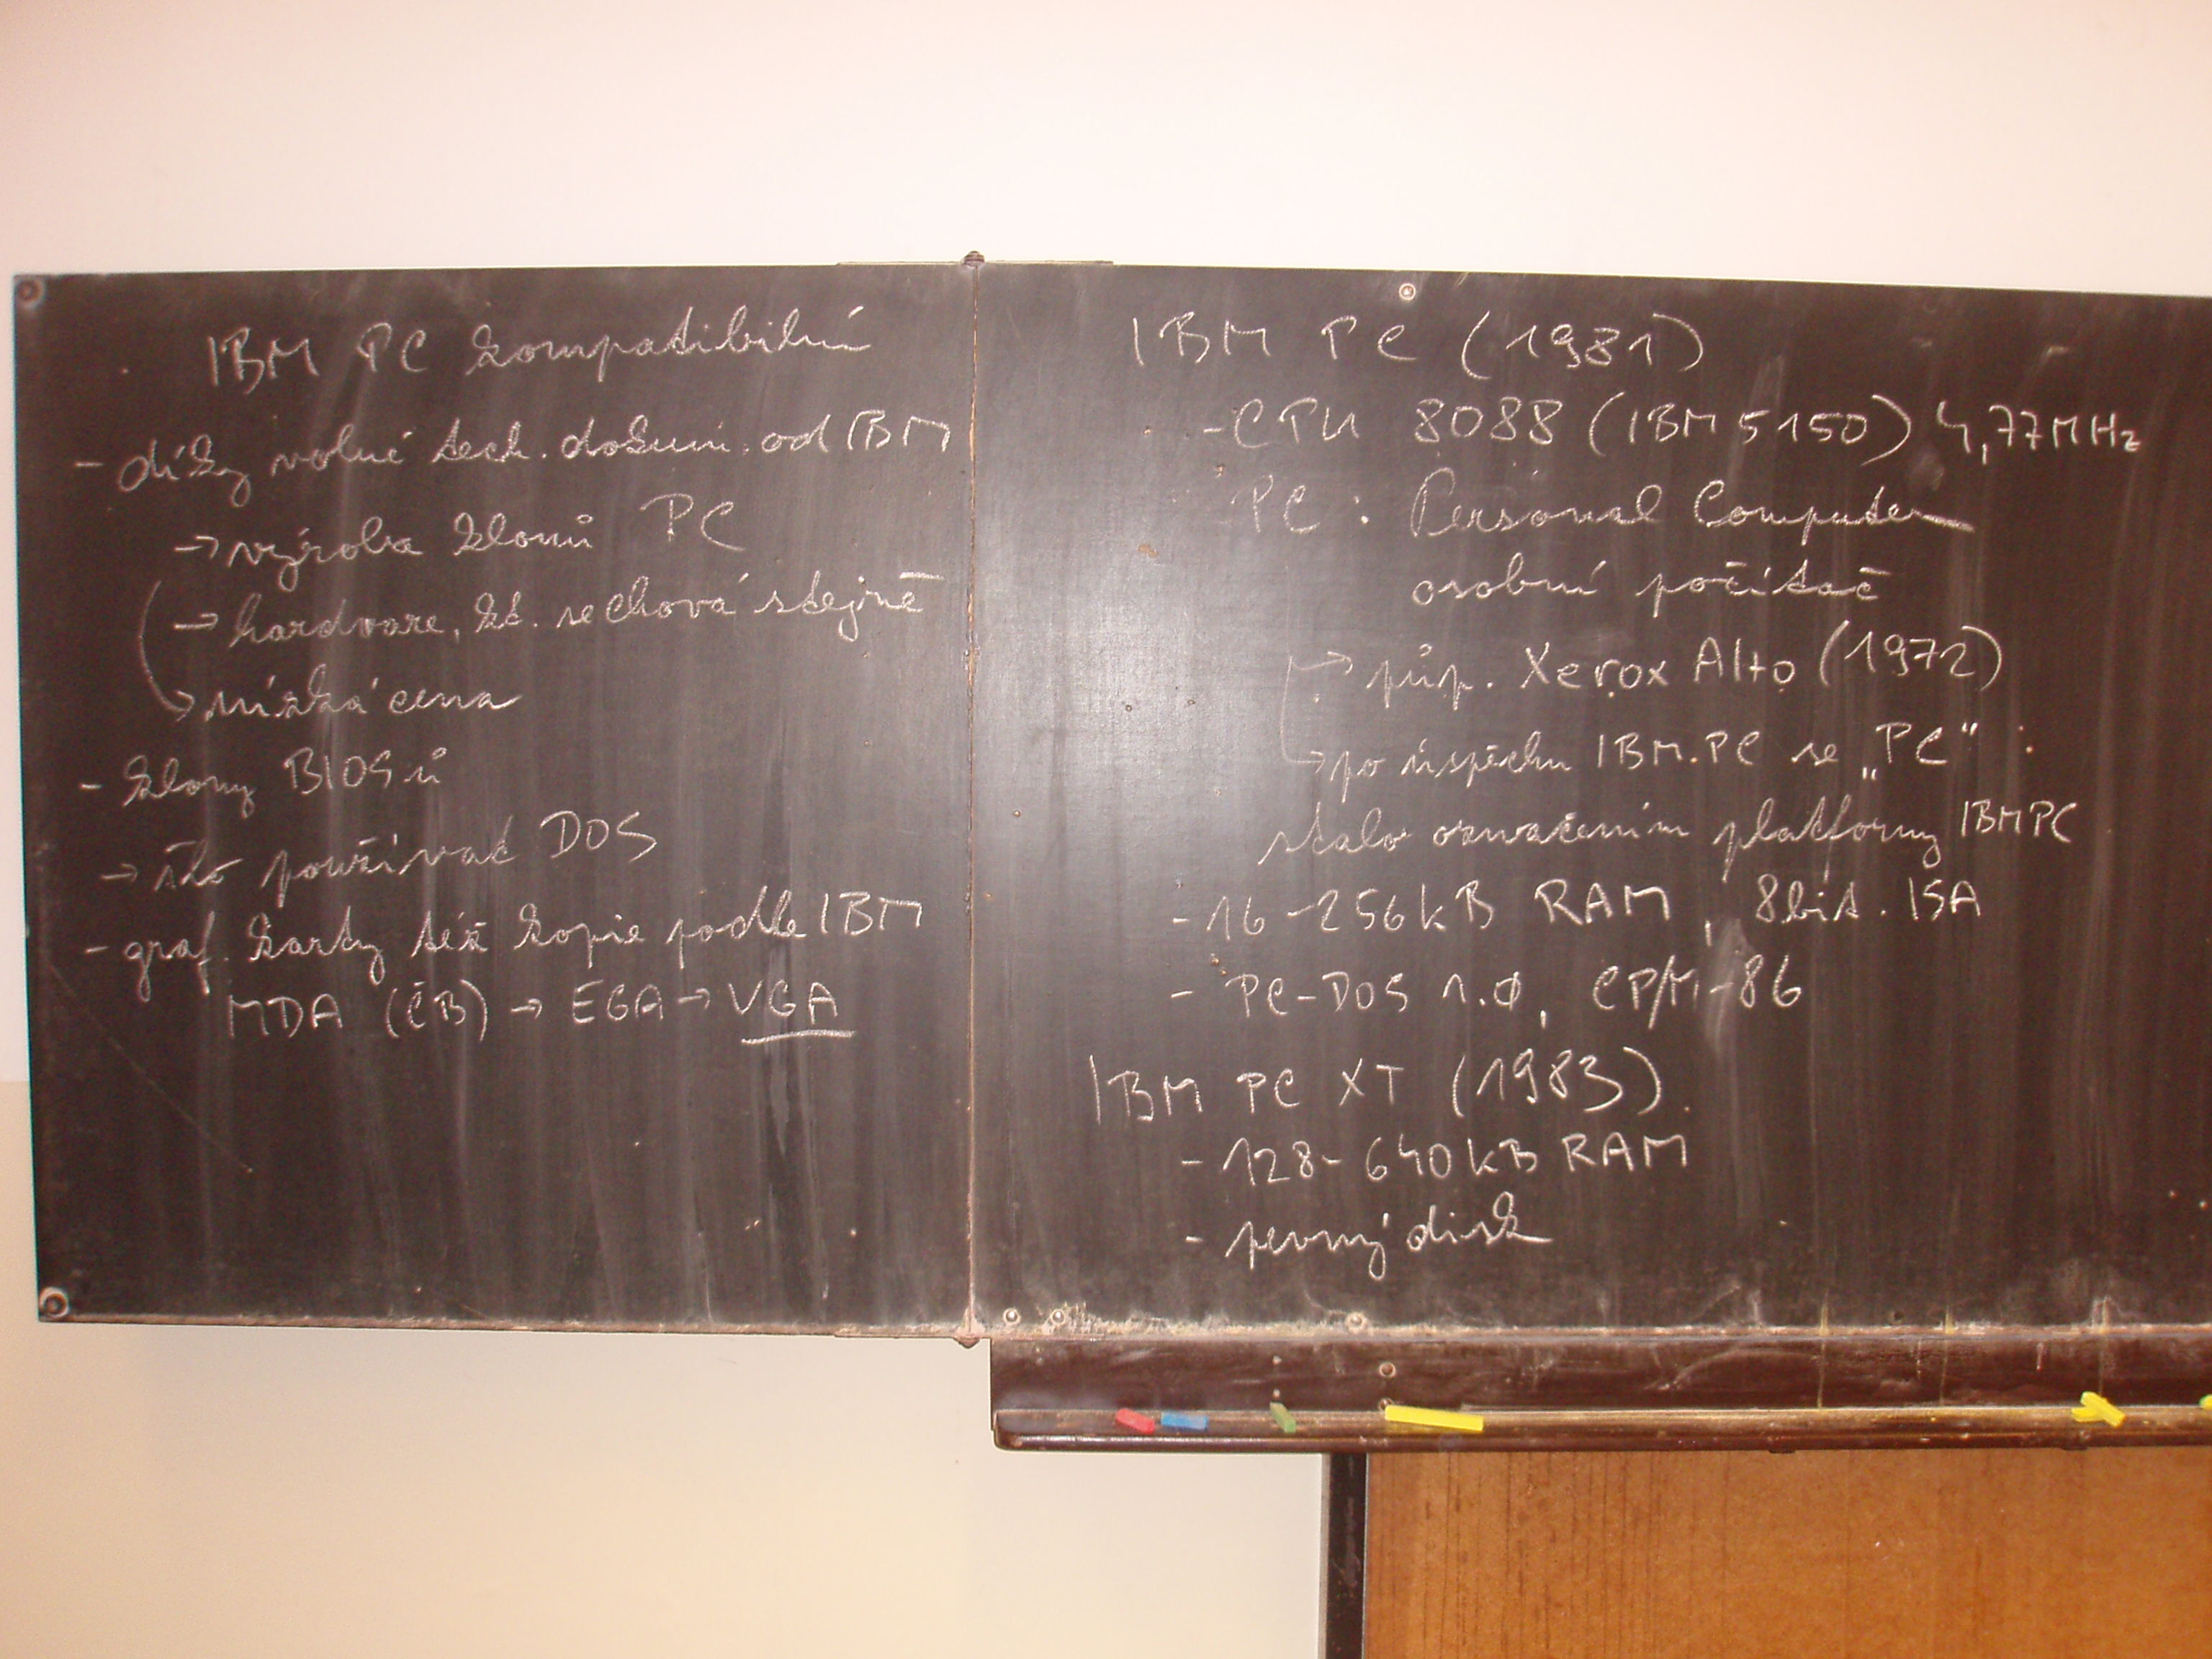 IBM PC kompatibilní
- díky volné tech. dokum. od IBM
→ výroba klonů PC
→ hardware, kt. se chová stejně
→ nízká cena
- klony BIOSů
→ šlo používat DOS
- graf. karty též kopie podle IBM
MDA (ČB) → EGA → VGA
IBM PC (1981)
- CPU 8088 (IBM 5150) 4,77MHz
PC : Personal Computer
osobní počítač
→ půp. Xerox Alto (1972)
→ po úspěchu IBM PC se „PC“
stalo označením platformy IBM PC
- 16-256kB RAM, 8bit. ISA
- PC-DOS 1.0, CP/M-86
IBM PC XT (1983)
- 128-640kB RAM
- pevný disk